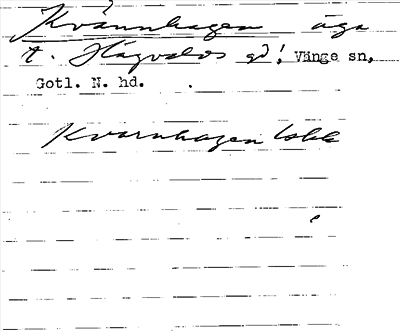 Kvännhagen äga
t. Hägvalds gd! Vänge sn,
Gotl. N. hd.
Kvarnhagen